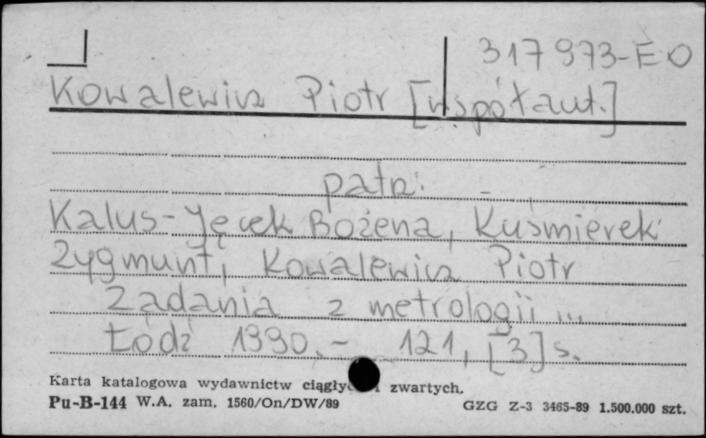 317973-E O
Kowalewicz Piotr [współaut.]
patrz:
Kalus-Jęcek Bożena, Kuśmierek
Zygmunt, Kowalewicz Piotr
Zadania z metrologii ...
Łódź 1990. - 121, [3] s.
Karta katalogowa wydawnictw zwartych.
Pu-B-144 W.A. zam. 1560/On/DW/89 GZG Z-3 3465-89 1.500.000 szt.